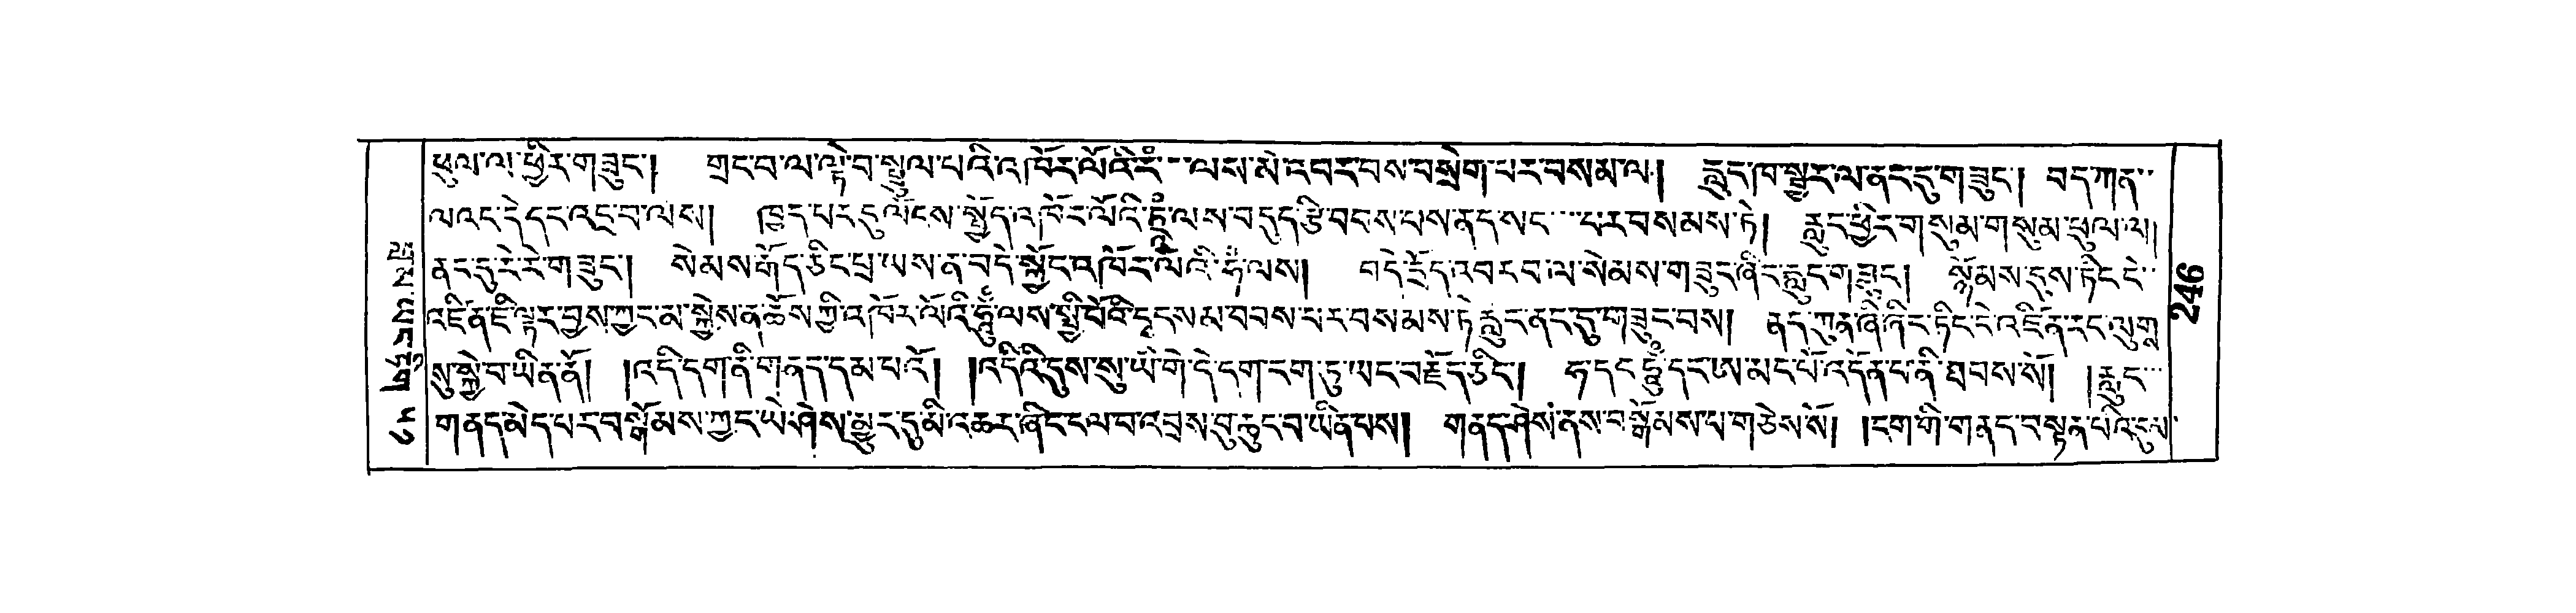 ཕུལ་ལ་ཕྱིར་གཟུང་། གྲང་བ་ལ་ལྟེ་བ་སྤྲུལ་པའི་འཁོར་ལོའི་རཾ་ལས་མེ་འབར་བས་བསྲེག་པར་བསམ་ལ། རླུང་ཁ་སྦྱར་ལ་ནང་དུ་གཟུང་། བད་ཀན་
ལའང་དེ་དང་འདྲ་བ་ལས། ཁྱད་པར་དུ་ལོངས་སྤྱོད་འཁོར་ལོའི་ ལས་བདུད་རྩི་བབས་པས་ནད་སང་པར་བསམས་ཏེ། རླུང་ཕྱིར་གསུམ་གསུམ་ཕུལ་ལ།
ནང་དུ་རེ་རེ་གཟུང་། སེམས་རྒོད་ཅིང་ཕྲ་ཡས་ན་བདེ་སྐྱོང་འཁོར་ལོའི་ཧཾ་ལས། བདེ་དྲོད་འབར་བ་ལ་སེམས་གཟུང་ཞིང་རླུང་གཟུང་། སྙོམས་དུས་ཏིང་ངེ་
འཛིན་ཇི་ལྟར་བྱས་ཀྱང་མ་སྐྱེས་ན་ཆོས་ཀྱི་འཁོར་ལོའི་ཧཱུྃ་ལས་སྤྱི་བོའི་དྭངས་མ་བབས་པར་བསམས་ཏེ་རླུང་ནང་དུ་གཟུང་བས། ནད་ཀུན་ཞི་ཞིང་ཏིང་ངེ་འཛིན་རང་ལུགས
སུ་སྐྱེ་བ་ཡིན་ནོ། །འདི་དག་ནི་གནད་དམ་པའོ། །འདིའི་དུས་སུ་ཡི་གེ་དེ་དག་ངག་ཏུ་ཡང་བརྗོད་ཅིང་། ཧ་དང་ཧཱུྃ་དང་ཨ་མང་པོ་འདོན་པ་ནི་ཐབས་སོ། །རླུང་
གནད་མེད་པར་བསྒོམས་ཀྱང་ཡེ་ཤེས་མྱུར་དུ་མི་འཆར་ཞིང་ངལ་བ་འབྲས་བུ་ཆུང་བ་ཡིན་པས། གནད་ཤེས་ནས་བསྒོམས་པ་གཅེས་སོ། །ངག་གི་གནད་བསྟན་པའི་དུམ་